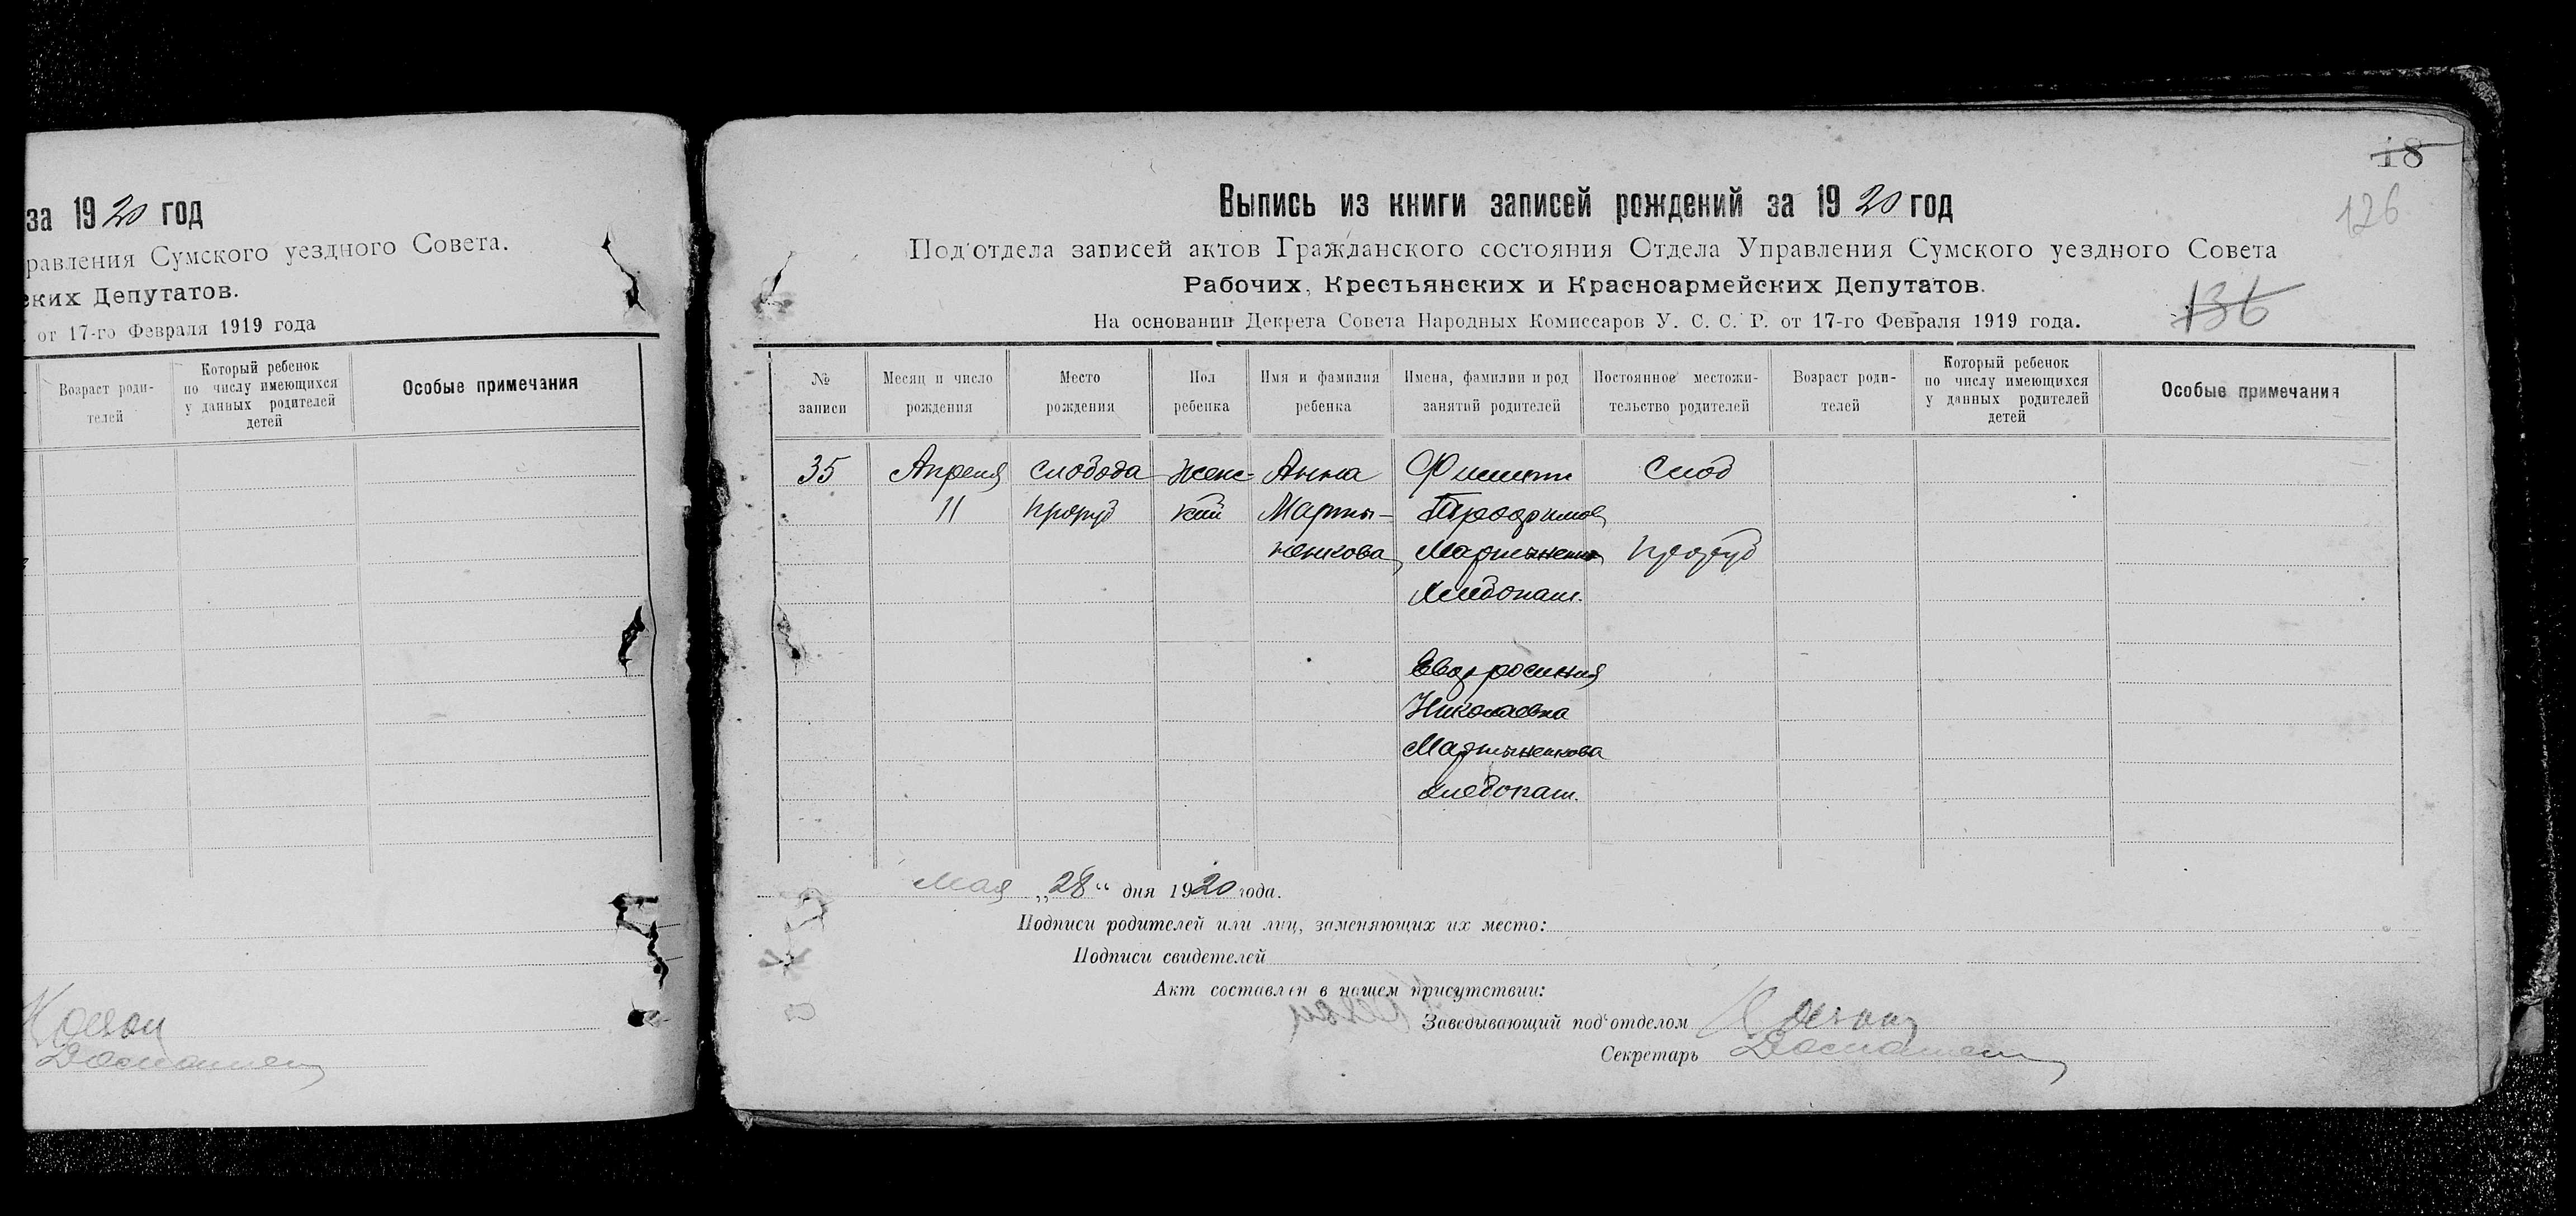 за 1920 год
равления Сумского уездного Совета.
ских Депутатов.
от 17-го Февраля 1919 года
Возраст роди-
телей
Который ребенок
по числу имеющихся
у данных родителей
детей
Особые примечания
18
126
Выпись из книги записей рождений за 1920 год
Под'отдела записей актов Гражданского состояния Отдела Управления Сумского уездного Совета
Рабочих, Крестьянских и Красноармейских Депутатов.
136
На основании Декрета Совета Народных Комиссаров У. С. С. Р. от 17-го Февраля 1919 года.
№
записи
Месяц и число
рождения
Место
рождения
Пол
ребенка
Имя и фамилия
ребенка
Имена, фамилии и род
занятий родителей
Постоянное местожи-
тельство родителей
Возраст роди-
телей
Который ребенок
по числу имеющихся
у данных родителей
детей
Особые примечания
35 Апреля слобода Женс- Анна Филипп Слоб
11 Проруб кий Марты- Трофимов
ненкова Мартыненко Проруб
хлебопаш.
Евфросиния
Николаевна
Мартыненкова
хлебопаш.
Мая „28“ дня 1920 года.
Подписи родителей или лиц, заменяющих их место:
Подписи свидетелей
Акт составлен в нашем присутствии:
Заведывающий под'отделом
Секретарь